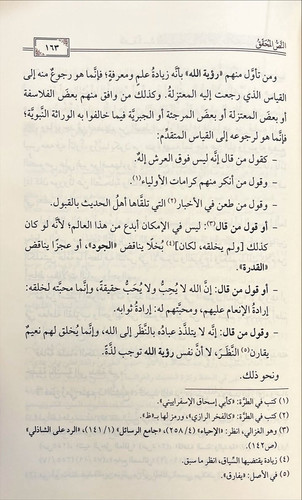 النَّصُّ المُحَقَّقُ
١٦٣
ومن تأوَّل منهم «رؤية الله» بأنَّه زيادةُ علمٍ ومعرفةٍ؛ فإنَّما هو رجوعٌ منه إلى
القياس الذي رجعت إليه المعتزلةُ. وكذلك من وافق منهم بعضَ الفلاسفة
أو بعضَ المعتزلة أو بعضَ المرجئة أو الجبريَّة فيما خالفوا به الوراثةَ النبويَّة؛
فإنَّما هو لرجوعه إلى القياس المتقدِّم:
– كقول من قال إنَّه ليس فوق العرش إلهٌ.
– وقول من أنكر منهم كرامات الأولياء(١).
– وقول من طعن في الأخبار(٢) التي تلقَّاها أهلُ الحديث بالقبول.
– أو قول من قال(٣): ليس في الإمكان أبدع من هذا العالم؛ لأنَّه لو كان
كذلك [ولم يخلقه، لكان](٤) بُخْلًا يناقض «الجود»، أو عجزًا يناقض
«القدرة».
– أو قول من قال: إنَّ الله لا يُحِبُّ ولا يُحَبُّ حقيقةً، وإنَّما محبَّته لخلقه:
إرادةُ الإنعام عليهم، ومحبَّتهم له: إرادةُ ثوابه.
– وقول من قال: إنَّه لا يتلذَّذ عبادُه بالنَّظَر إلى الله، وإنَّما يُخلق لهم نعيمٌ
يقارن(٥) النَّظَرَ، لا أنَّ نفس رؤية الله توجب لذَّةً.
ونحو ذلك.
(١) كتب في الطرَّة: «كأبي إسحاق الإسفراييني».
(٢) كتب في الطرَّة: «كالفخر الرازي»، ورمز لها بـ«ظ».
(٣) وهو الغزالي، انظر: «الإحياء» (٢٥٨/٤)، «جامع الرسائل» (١٤١/١)، «الرد على الشاذلي»
(ص١٤٢).
(٤) زيادة يقتضيها السِّياق، انظر ما سبق.
(٥) في الأصل: «يفارق».